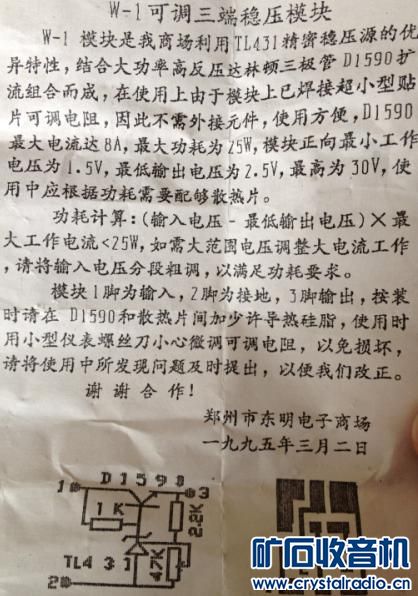 W-1可调三端稳压模块
W-1 模块是我商场利用TL431精密稳压源的优
异特性，结合大功率高反压达林顿三极管 D1590扩
流组合而成，在使用上由于模块上已焊接超小型贴
片可调电阻，因此不需外接元件，使用方便，D1590
最大电流达8A，最大功耗为25W，模块正向最小工作
电压为1.5V，最低输出电压为2.5V，最高为30V，使
用中应根据功耗需要配够散热片。
功耗计算：(输入电压-最低输出电压)×最
大工作电流<25W，如需大范围电压调整大电流工作
，请将输入电压分段粗调，以满足功耗要求。
模块1脚为输入，2脚为接地，3脚输出，按装
时请在 D1590和散热片间加少许导热硅脂，使用时
用小型仪表螺丝刀小心微调可调电阻，以免损坏，
请将使用中所发现问题及时提出，以便我们改正。
谢谢合作！
郑州市东明电子商场
一九九五年三月二日
D1590
1
3
1K
2.2K
TL431
47K
2
矿石收音机
www.crystalradio.cn